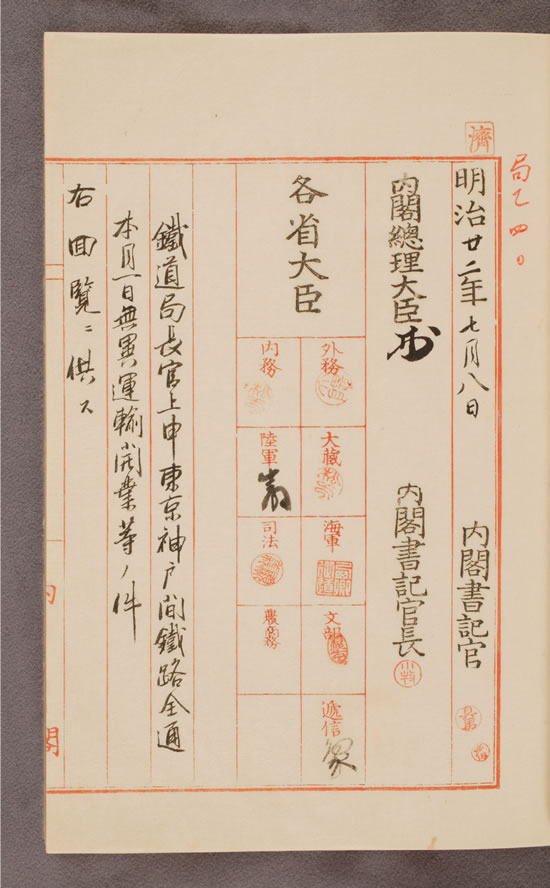 濟
局乙四〇
明治廿二年七月八日
内閣書記官
内閣總理大臣
内閣書記官長
各省大臣
外務
大藏
海軍
文部
遞信
内務
陸軍
司法
農商務
鐵道局長官上申東京神戸間鐵路全通
本月一日無異運輸開業等ノ件
右回覽ニ供ス
内
閣